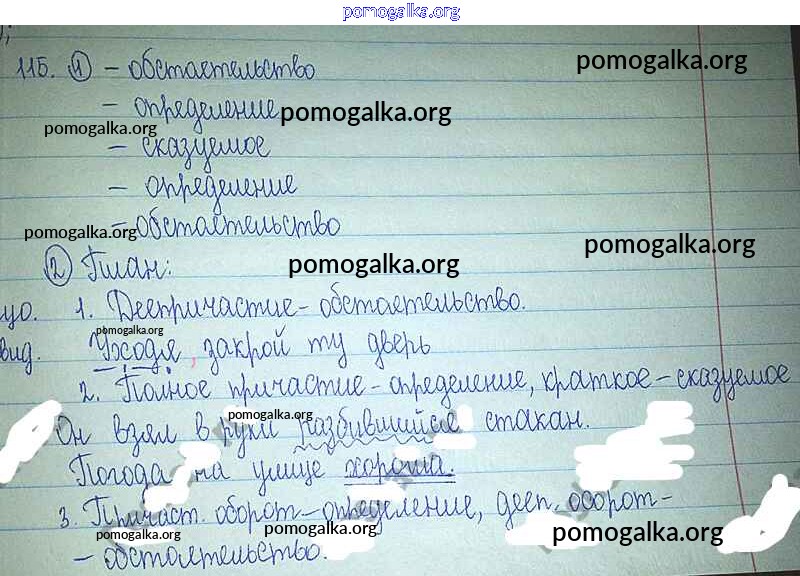 pomogalka.org
115. 1 - обстоятельство
pomogalka.org
- определение
pomogalka.org
pomogalka.org
- сказуемое
- определение
- обстоятельство
pomogalka.org
pomogalka.org
2 План:
pomogalka.org
1. Деепричастие - обстоятельство.
pomogalka.org
вид. Уходя, закрой ту дверь
2. Полное причастие - определение, краткое - сказуемое
pomogalka.org
Он взял в руки разбившийся стакан.
Погода на улице хороша.
3. Причаст. оборот - определение, дееп. оборот -
pomogalka.org
pomogalka.org
pomogalka.org
- обстоятельство.